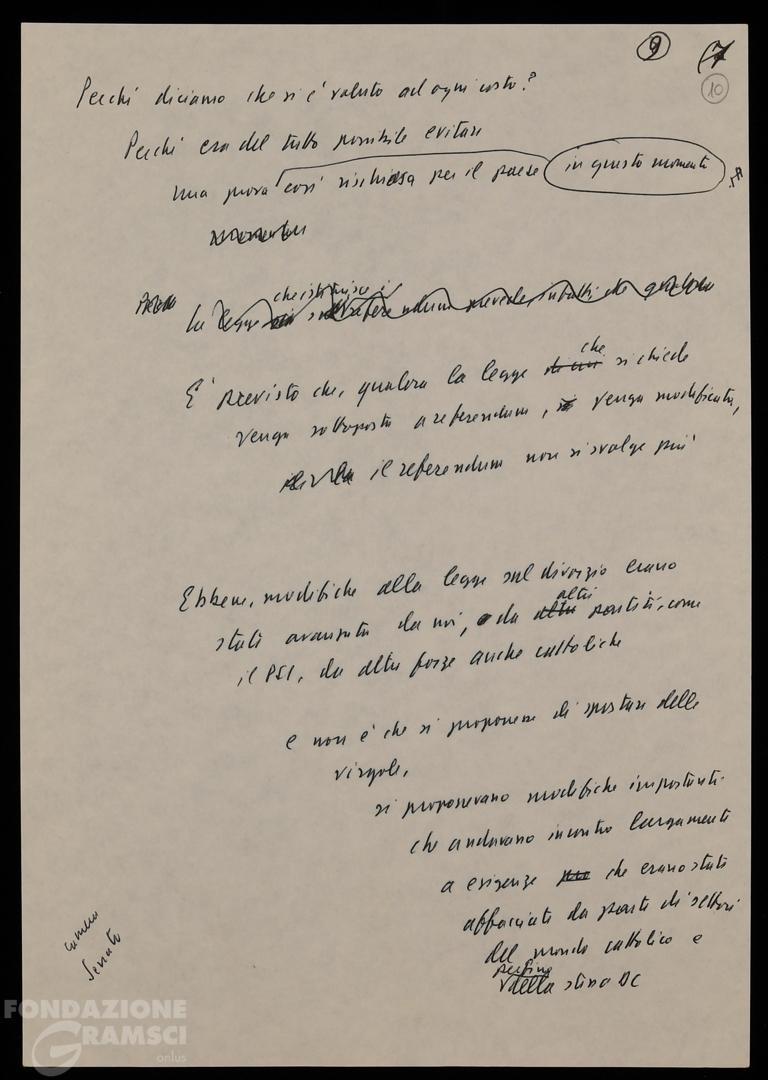 9 7
10
Perché diciamo che si è voluto ad ogni costo?
Perché era del tutto possibile evitare
una prova così rischiosa per il paese in questo momento
momento
La legge che istituisce il referendum prevede infatti che qualora
E' previsto che, qualora la legge di cui che si chiede
venga sottoposta a referendum, venga modificata,
il referendum non si svolge più
Ebbene, modifiche alla legge sul divorzio erano
state avanzate da noi, da altri partiti, come
il PSI, da altre forze anche cattoliche
e non è che si proponesse di spostare delle
virgole,
si proponevano modifiche importanti
che andavano incontro largamente
a esigenze che erano state
affacciate da parte di settori
del mondo cattolico e
perfino
della stessa DC
camera
Senato
FONDAZIONE
GRAMSCI
onlus